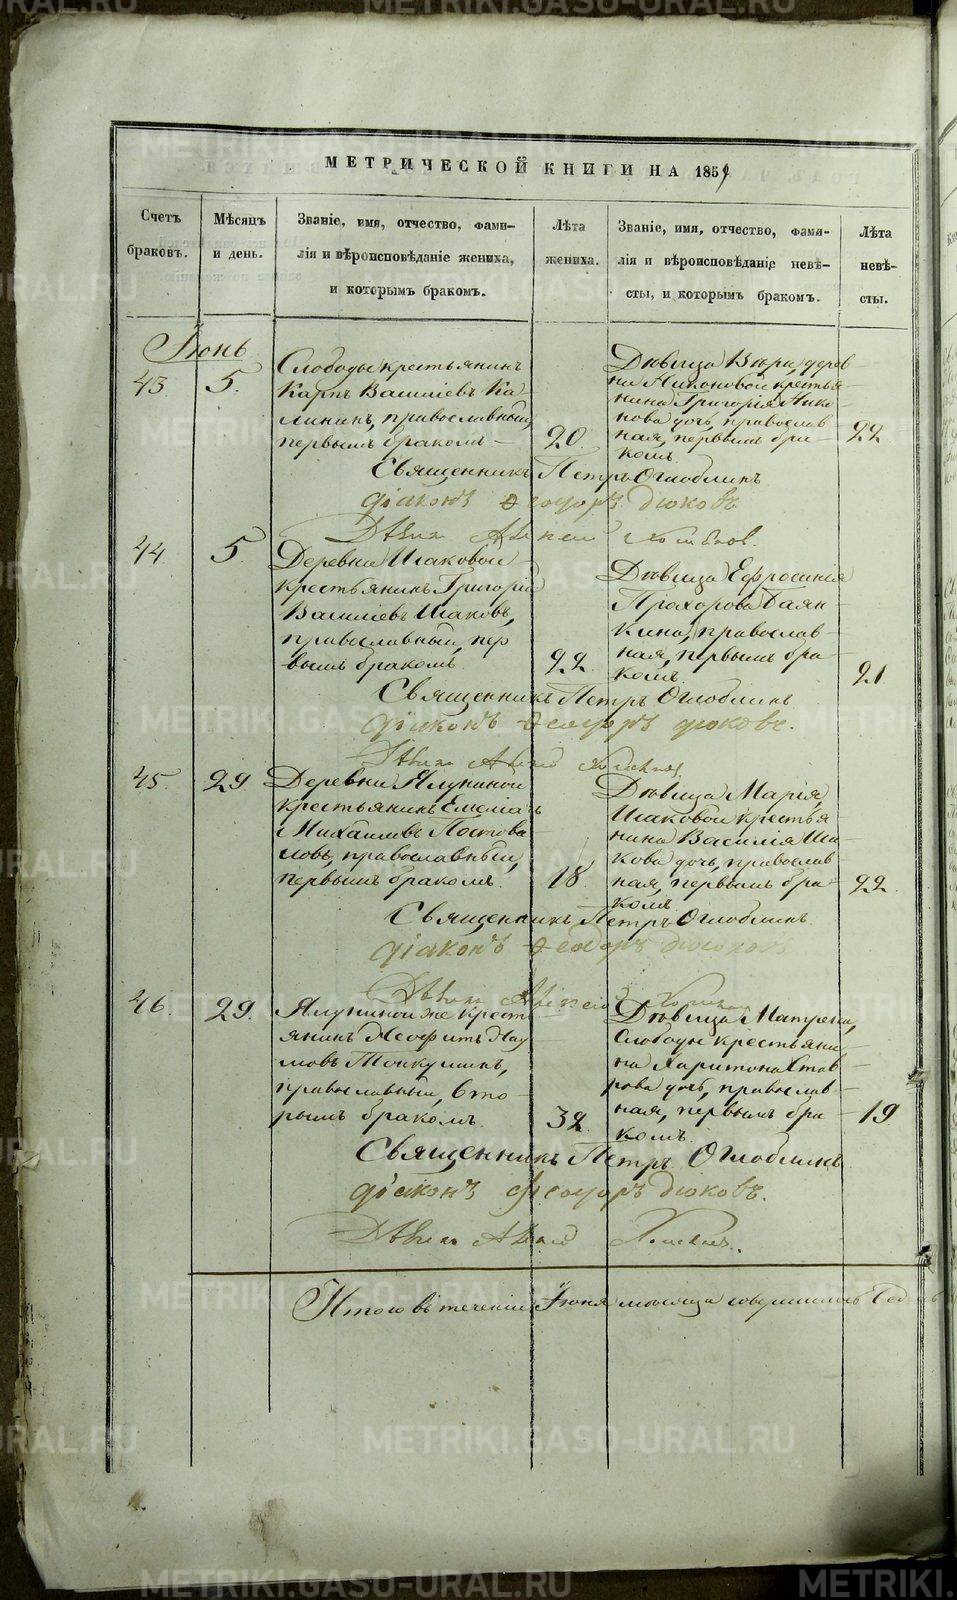 МЕТРИЧЕСКОЙ КНИГИ НА 1859
Счетъ браковъ.
Мѣсяцъ и день.
Званіе, имя, отчество, фами-
лія и вѣроисповѣданіе жениха,
и которымъ бракомъ.
Лѣта жениха.
Званіе, имя, отчество, фами-
лія и вѣроисповѣданіе невѣ-
сты, и которымъ бракомъ.
Лѣта невѣ-
сты.
Іюнь
43
5.
Слободы крестьянинъ
Карпъ Васильевъ Ка-
лининъ, православный,
первымъ бракомъ
20
Дѣвица Вѣра дерев-
ни Никоновой крестья-
нина Григорія Нико-
нова дочь, православ-
ная, первымъ бра-
комъ
22
Священникъ Петръ Оглоблинъ
діаконъ Ѳеодоръ Дюковъ
44
5.
Деревни Исаковой
крестьянинъ Григорій
Васильевъ Исаковъ,
православный, пер-
вымъ бракомъ.
22.
Дѣвица Ефросинія
Прохорова
православ-
ная, первымъ бра-
комъ.
21
Священникъ Петръ Оглоблинъ
діаконъ Ѳеодоръ Дюковъ.
45.
29
Деревни Ялуниной
крестьянинъ Емельянъ
Михайловъ Постова-
ловъ, православный,
первымъ бракомъ.
18.
Дѣвица Марія,
Исаковой крестья-
нина Василія Иса-
кова дочь, православ-
ная, первымъ бра-
комъ
22.
Священникъ Петръ Оглоблинъ
діаконъ Ѳеодоръ Дюковъ
46.
29.
Ялуниной же кресть-
янинъ Неофитъ Нау-
мовъ
православный, вто-
рымъ бракомъ.
32.
Дѣвица Матрена,
Слободы крестьяни-
на Харитона Став-
рова дочь, православ-
ная, первымъ бра-
комъ.
19
Священникъ Петръ Оглоблинъ
діаконъ Ѳеодоръ Дюковъ.
Итого въ теченіи Іюня мѣсяца совершилось
METRIKI.GASO-URAL.RU